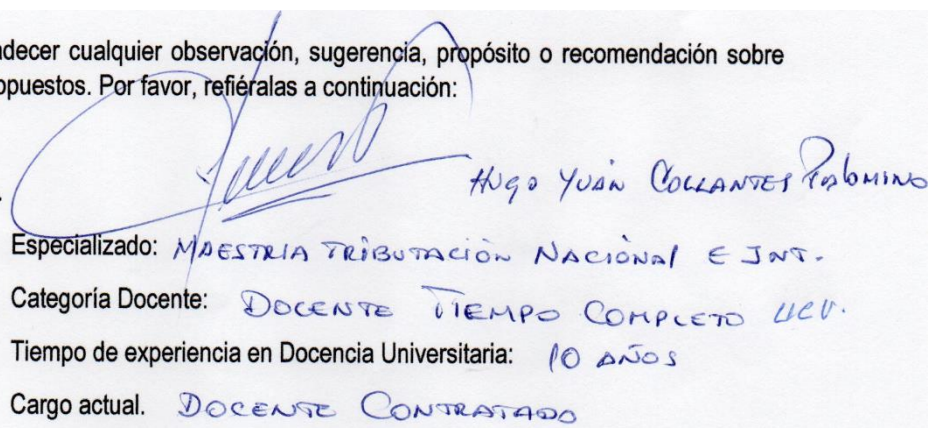 adecer cualquier observación, sugerencia, propósito o recomendación sobre
opuestos. Por favor, refiéralas a continuación:
Hugo Yván Collantes Palomino
Especializado: MAESTRIA TRIBUTACIÓN NACIONAl E INT.
Categoría Docente: DOCENTE TIEMPO COMPLETO UCV.
Tiempo de experiencia en Docencia Universitaria: 10 AÑOS
Cargo actual. DOCENTE CONTRATADO